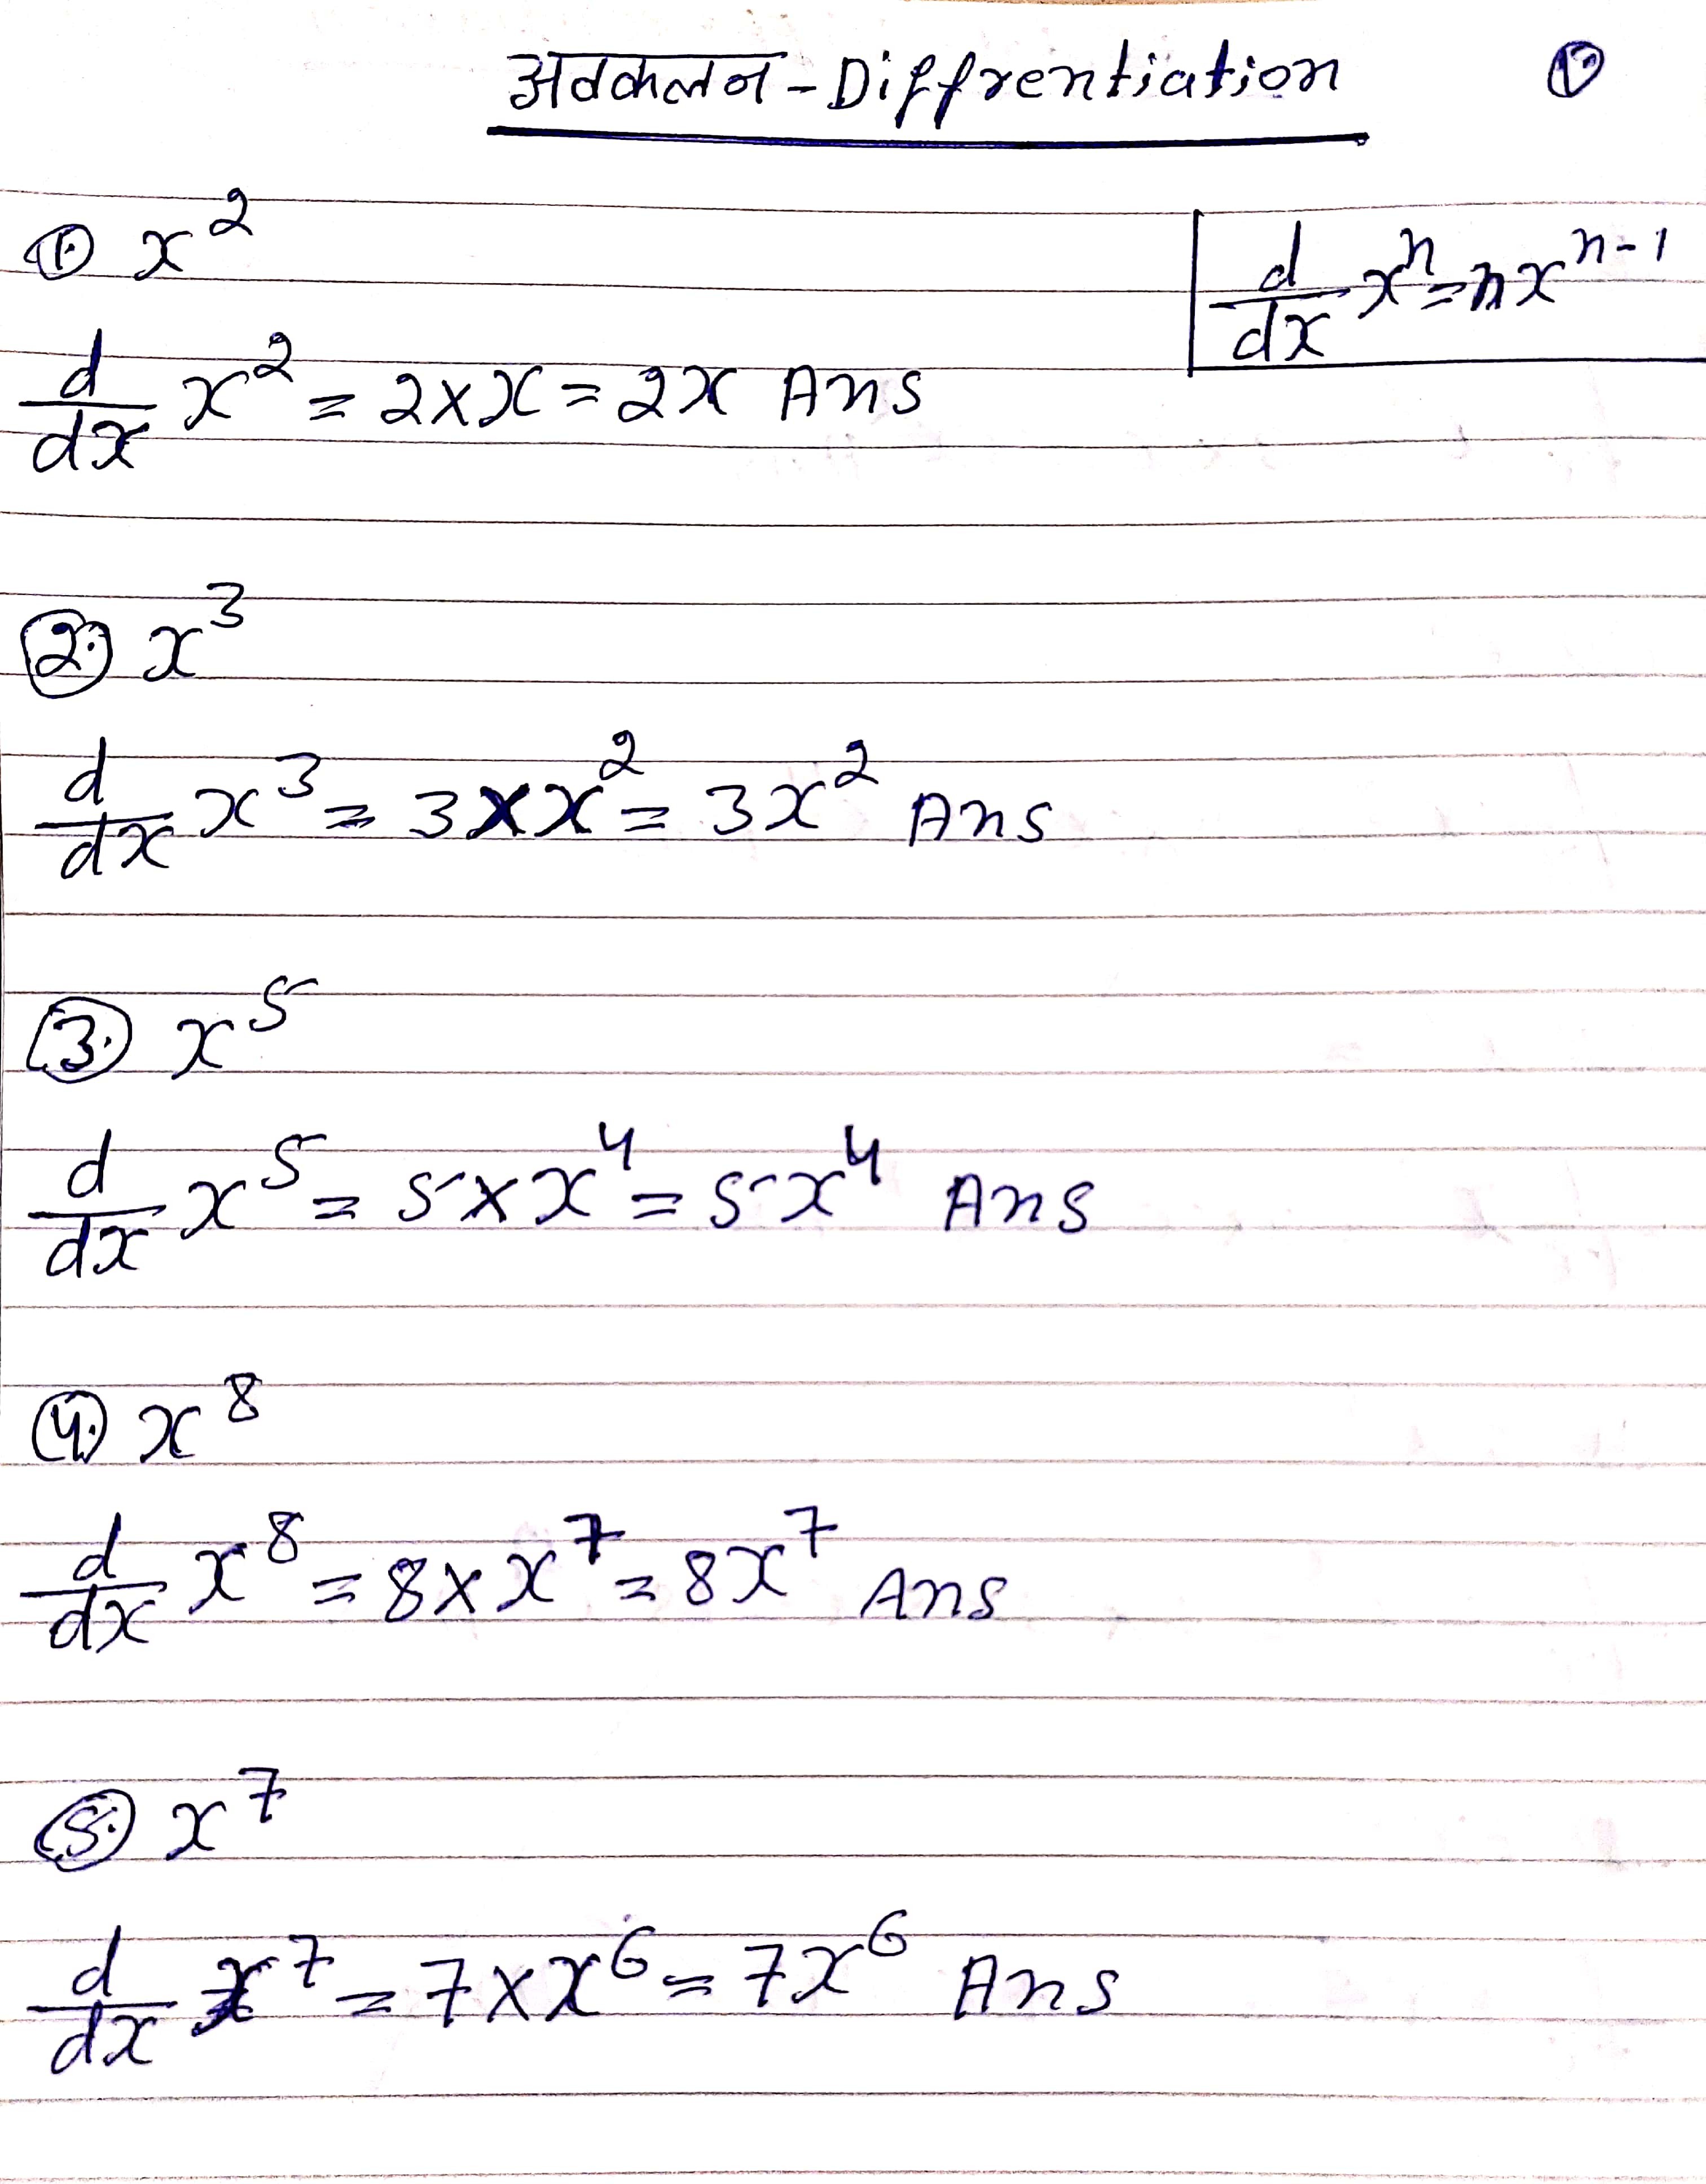 अवकलन - Diffrentiation ①
① x²
d/dx xⁿ = nxⁿ⁻¹
d/dx x² = 2×x = 2x Ans
②. x³
d/dx x³ = 3×x² = 3x² Ans
③. x⁵
d/dx x⁵ = 5×x⁴ = 5x⁴ Ans
④. x⁸
d/dx x⁸ = 8×x⁷ = 8x⁷ Ans
⑤. x⁷
d/dx x⁷ = 7×x⁶ = 7x⁶ Ans